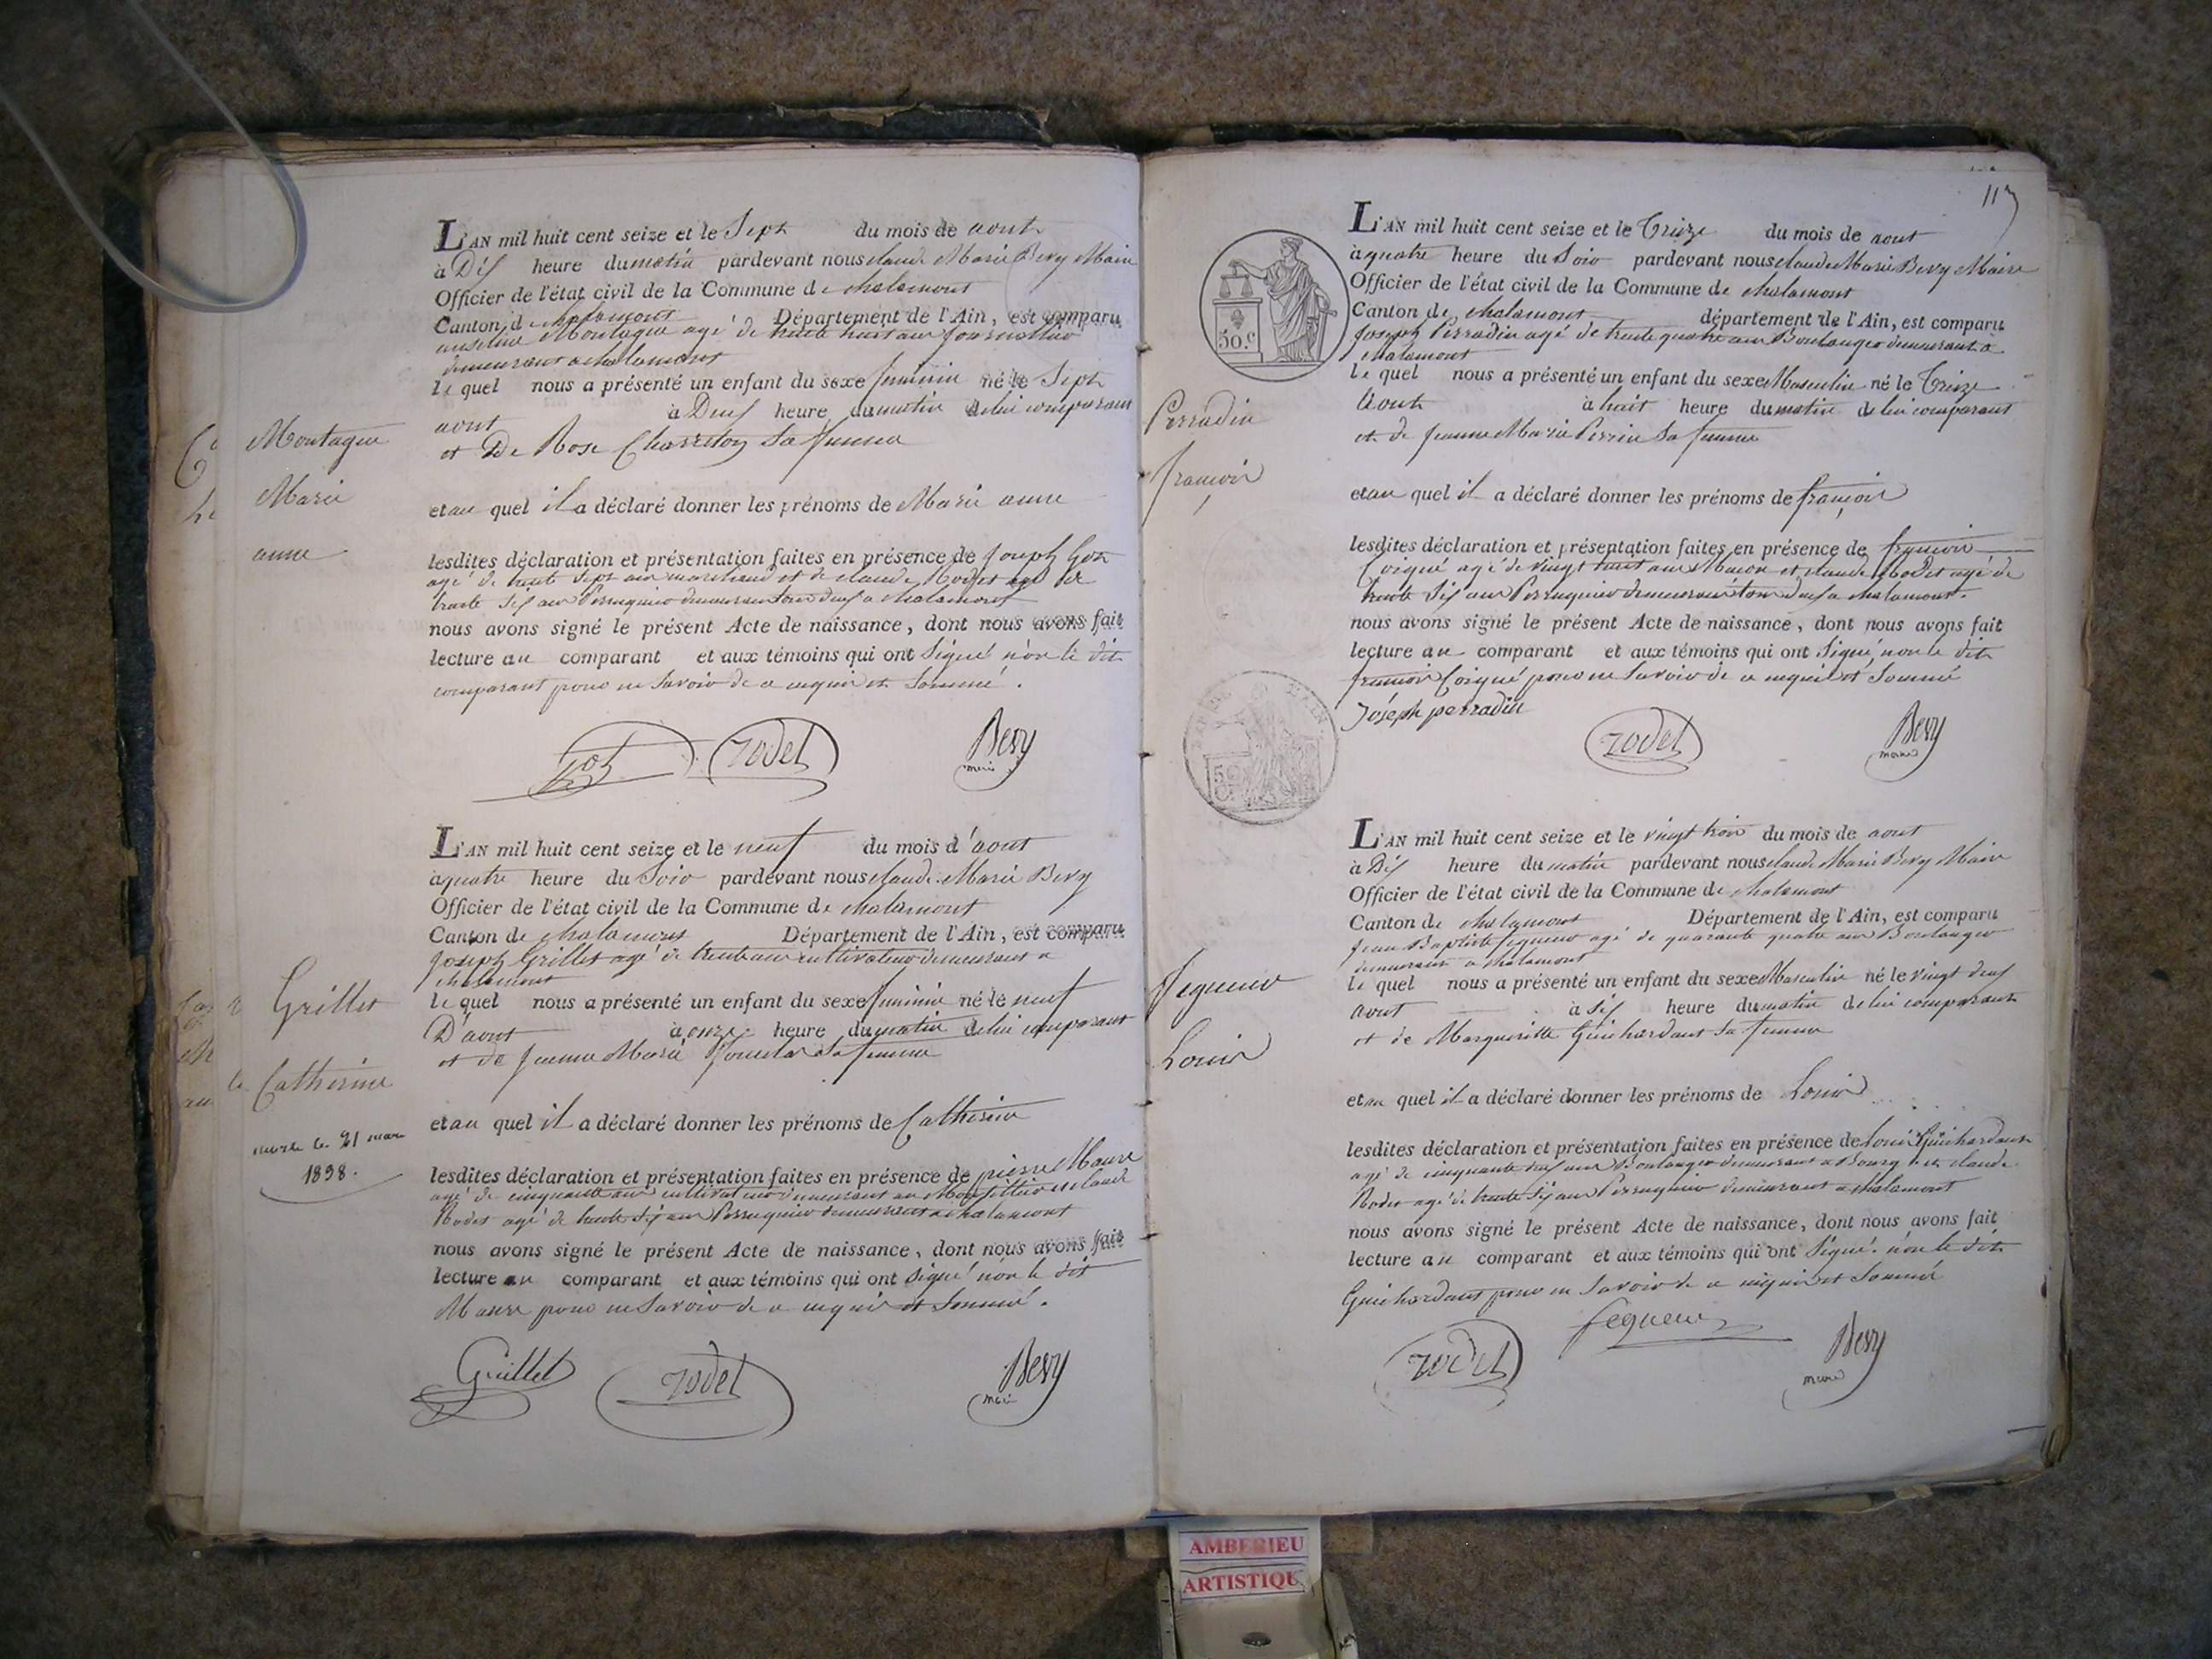 Montague
Marie
anne
L'AN mil huit cent seize et le Sept du mois de aout
à Dix heure du matin pardevant nous claude Marie Bevy Maire
Officier de l'état civil de la Commune de chalamont
Canton de chalamont Département de l'Ain, est comparu
anselme Montague agé de trente huit ans journallier
demeurant a chalamont
le quel nous a présenté un enfant du sexe feminin né le Sept
aout à Deux heure du matin de lui comparant
et De Rose Charreton Sa femme
et au quel il a déclaré donner les prénoms de Marie anne
lesdites déclaration et présentation faites en présence de Joseph Goz
agé de trente Sept ans marchand et de claude Rodet agé de
trente Six ans Perruquier demeurant tous deux a chalamont
nous avons signé le présent Acte de naissance, dont nous avons fait
lecture au comparant et aux témoins qui ont Signé non le dit
comparant pour ne Savoir de ce enquis et Sommé.
rodet
Bevy
maire
Grillet
Catherine
1898.
L'AN mil huit cent seize et le neuf du mois d'aout
à quatre heure du Soir pardevant nous claude Marie Bevy
Officier de l'état civil de la Commune de chalamont
Canton de chalamont Département de l'Ain, est comparu
Joseph Grillet agé de trente ans cultivateur demeurant a
chalamont
le quel nous a présenté un enfant du sexe feminin né le neuf
D'aout à onze heure du matin de lui comparant
et de Jeanne Marie Sa femme
et au quel il a déclaré donner les prénoms de Catherine
lesdites déclaration et présentation faites en présence de pierre Maure
agé de cinquante ans cultivateur demeurant au et claude
Rodet agé de trente Six ans Perruquier demeurant a chalamont
nous avons signé le présent Acte de naissance, dont nous avons fait
lecture au comparant et aux témoins qui ont Signé non le dit
Maure pour ne Savoir de ce enquis et Sommé.
Grillet
rodet
Bevy
maire
113
50.c
Perradin
françois
L'AN mil huit cent seize et le Treize du mois de aout
à quatre heure du Soir pardevant nous claude Marie Bevy Maire
Officier de l'état civil de la Commune de chalamont
Canton de chalamont département de l'Ain, est comparu
Joseph Perradin agé de trente quatre ans Boulanger demeurant a
chalamont
le quel nous a présenté un enfant du sexe Masculin né le Treize
Aout à huit heure du matin de lui comparant
et de Jeanne Marie Perrin Sa femme
et au quel il a déclaré donner les prénoms de françois
lesdites déclaration et présentation faites en présence de françois
Coigué agé de vingt huit ans Macon et claude Rodet agé de
trente Six ans Perruquier demeurant tous deux a chalamont.
nous avons signé le présent Acte de naissance, dont nous avons fait
lecture au comparant et aux témoins qui ont Signé non le dit
françois Coigué pour ne Savoir de ce enquis et Sommé
Joseph perradin
rodet
Bevy
maire
fequeur
Louis
L'AN mil huit cent seize et le vingt trois du mois de aout
à Dix heure du matin pardevant nous claude Marie Bevy Maire
Officier de l'état civil de la Commune de chalamont
Canton de chalamont Département de l'Ain, est comparu
Jean Baptiste fequeur agé de quarante quatre ans Boulanger
demeurant a chalamont
le quel nous a présenté un enfant du sexe Masculin né le vingt deux
aout à Six heure du matin de lui comparant
et de Marguerite Guichardant Sa femme
et au quel il a déclaré donner les prénoms de Louis
lesdites déclaration et présentation faites en présence de Louis Guichardant
agé de cinquante ans Boulanger demeurant a Bourg et claude
Rodet agé de trente Six ans Perruquier demeurant a chalamont
nous avons signé le présent Acte de naissance, dont nous avons fait
lecture au comparant et aux témoins qui ont Signé non le dit
Guichardant pour ne Savoir de ce enquis et Sommé
rodet
fequeur
Bevy
maire
AMBERIEU
ARTISTIQU